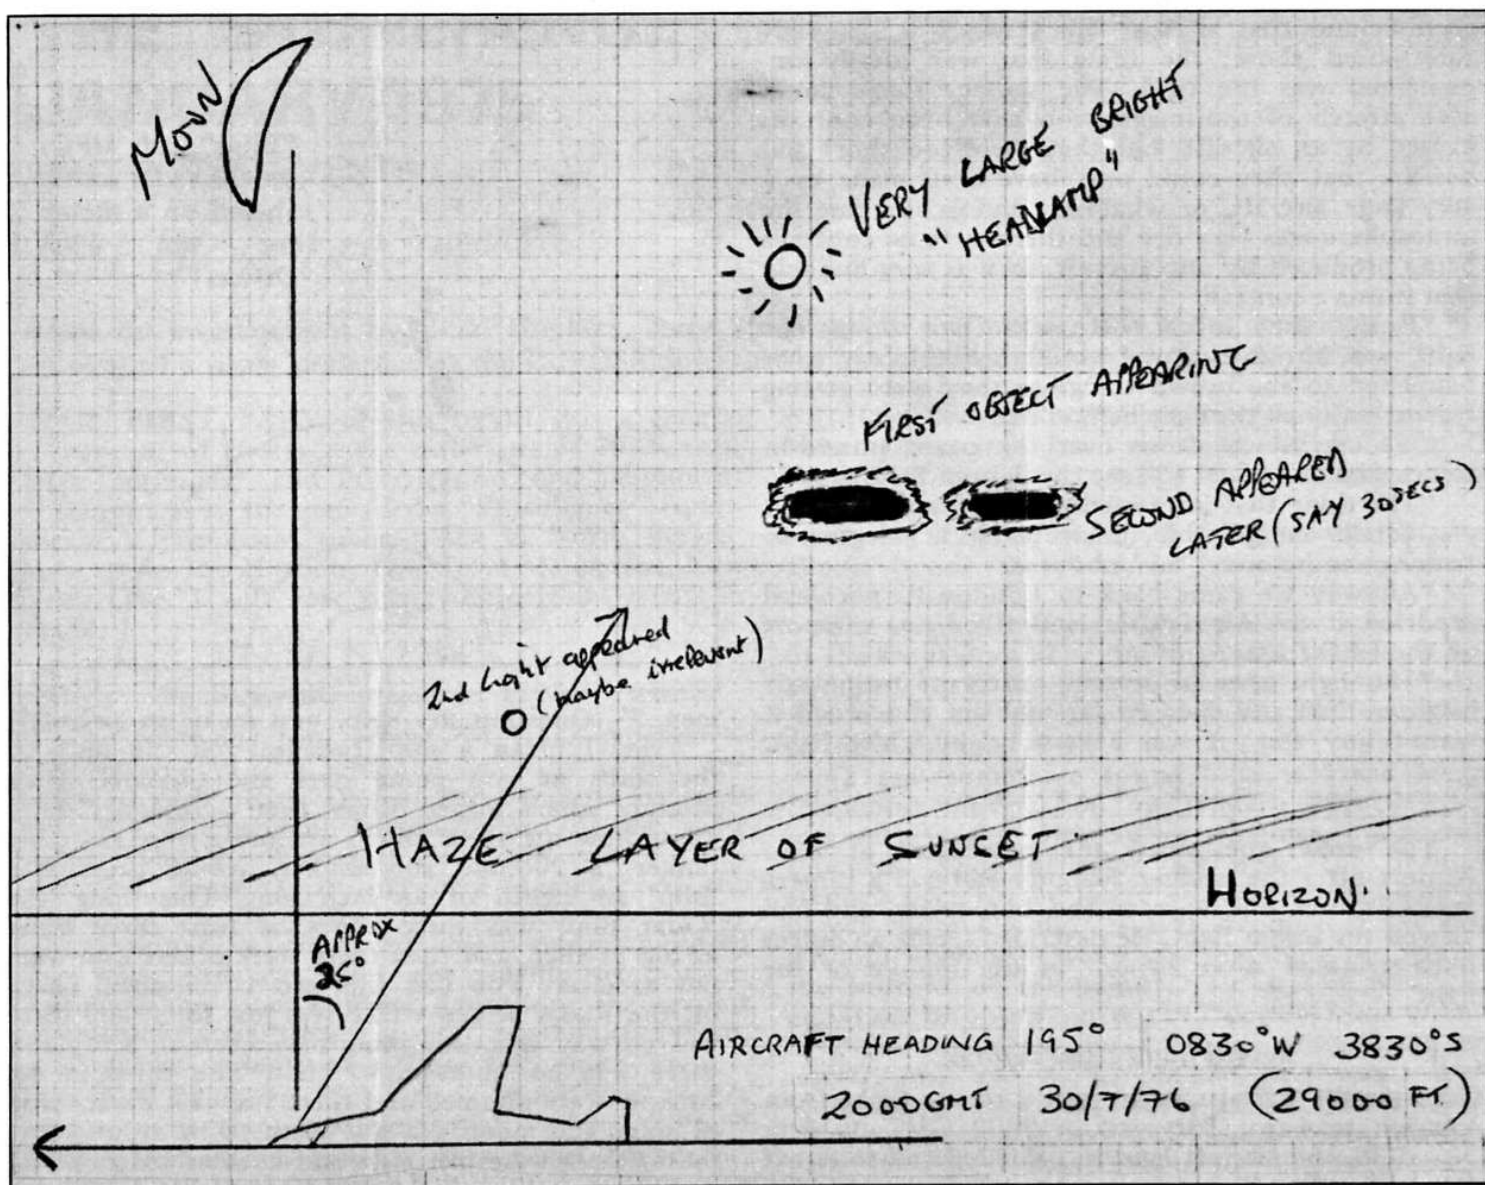 MOON
VERY LARGE BRIGHT
"HEADLAMP"
FIRST OBJECT APPEARING
SECOND APPEARED
LATER (SAY 30 SECS)
2nd Light appeared
(maybe irrelevent)
HAZE LAYER OF SUNSET
HORIZON.
APPROX
25°
AIRCRAFT HEADING 195° 0830°W 3830°S
2000GMT 30/7/76 (29000 FT)